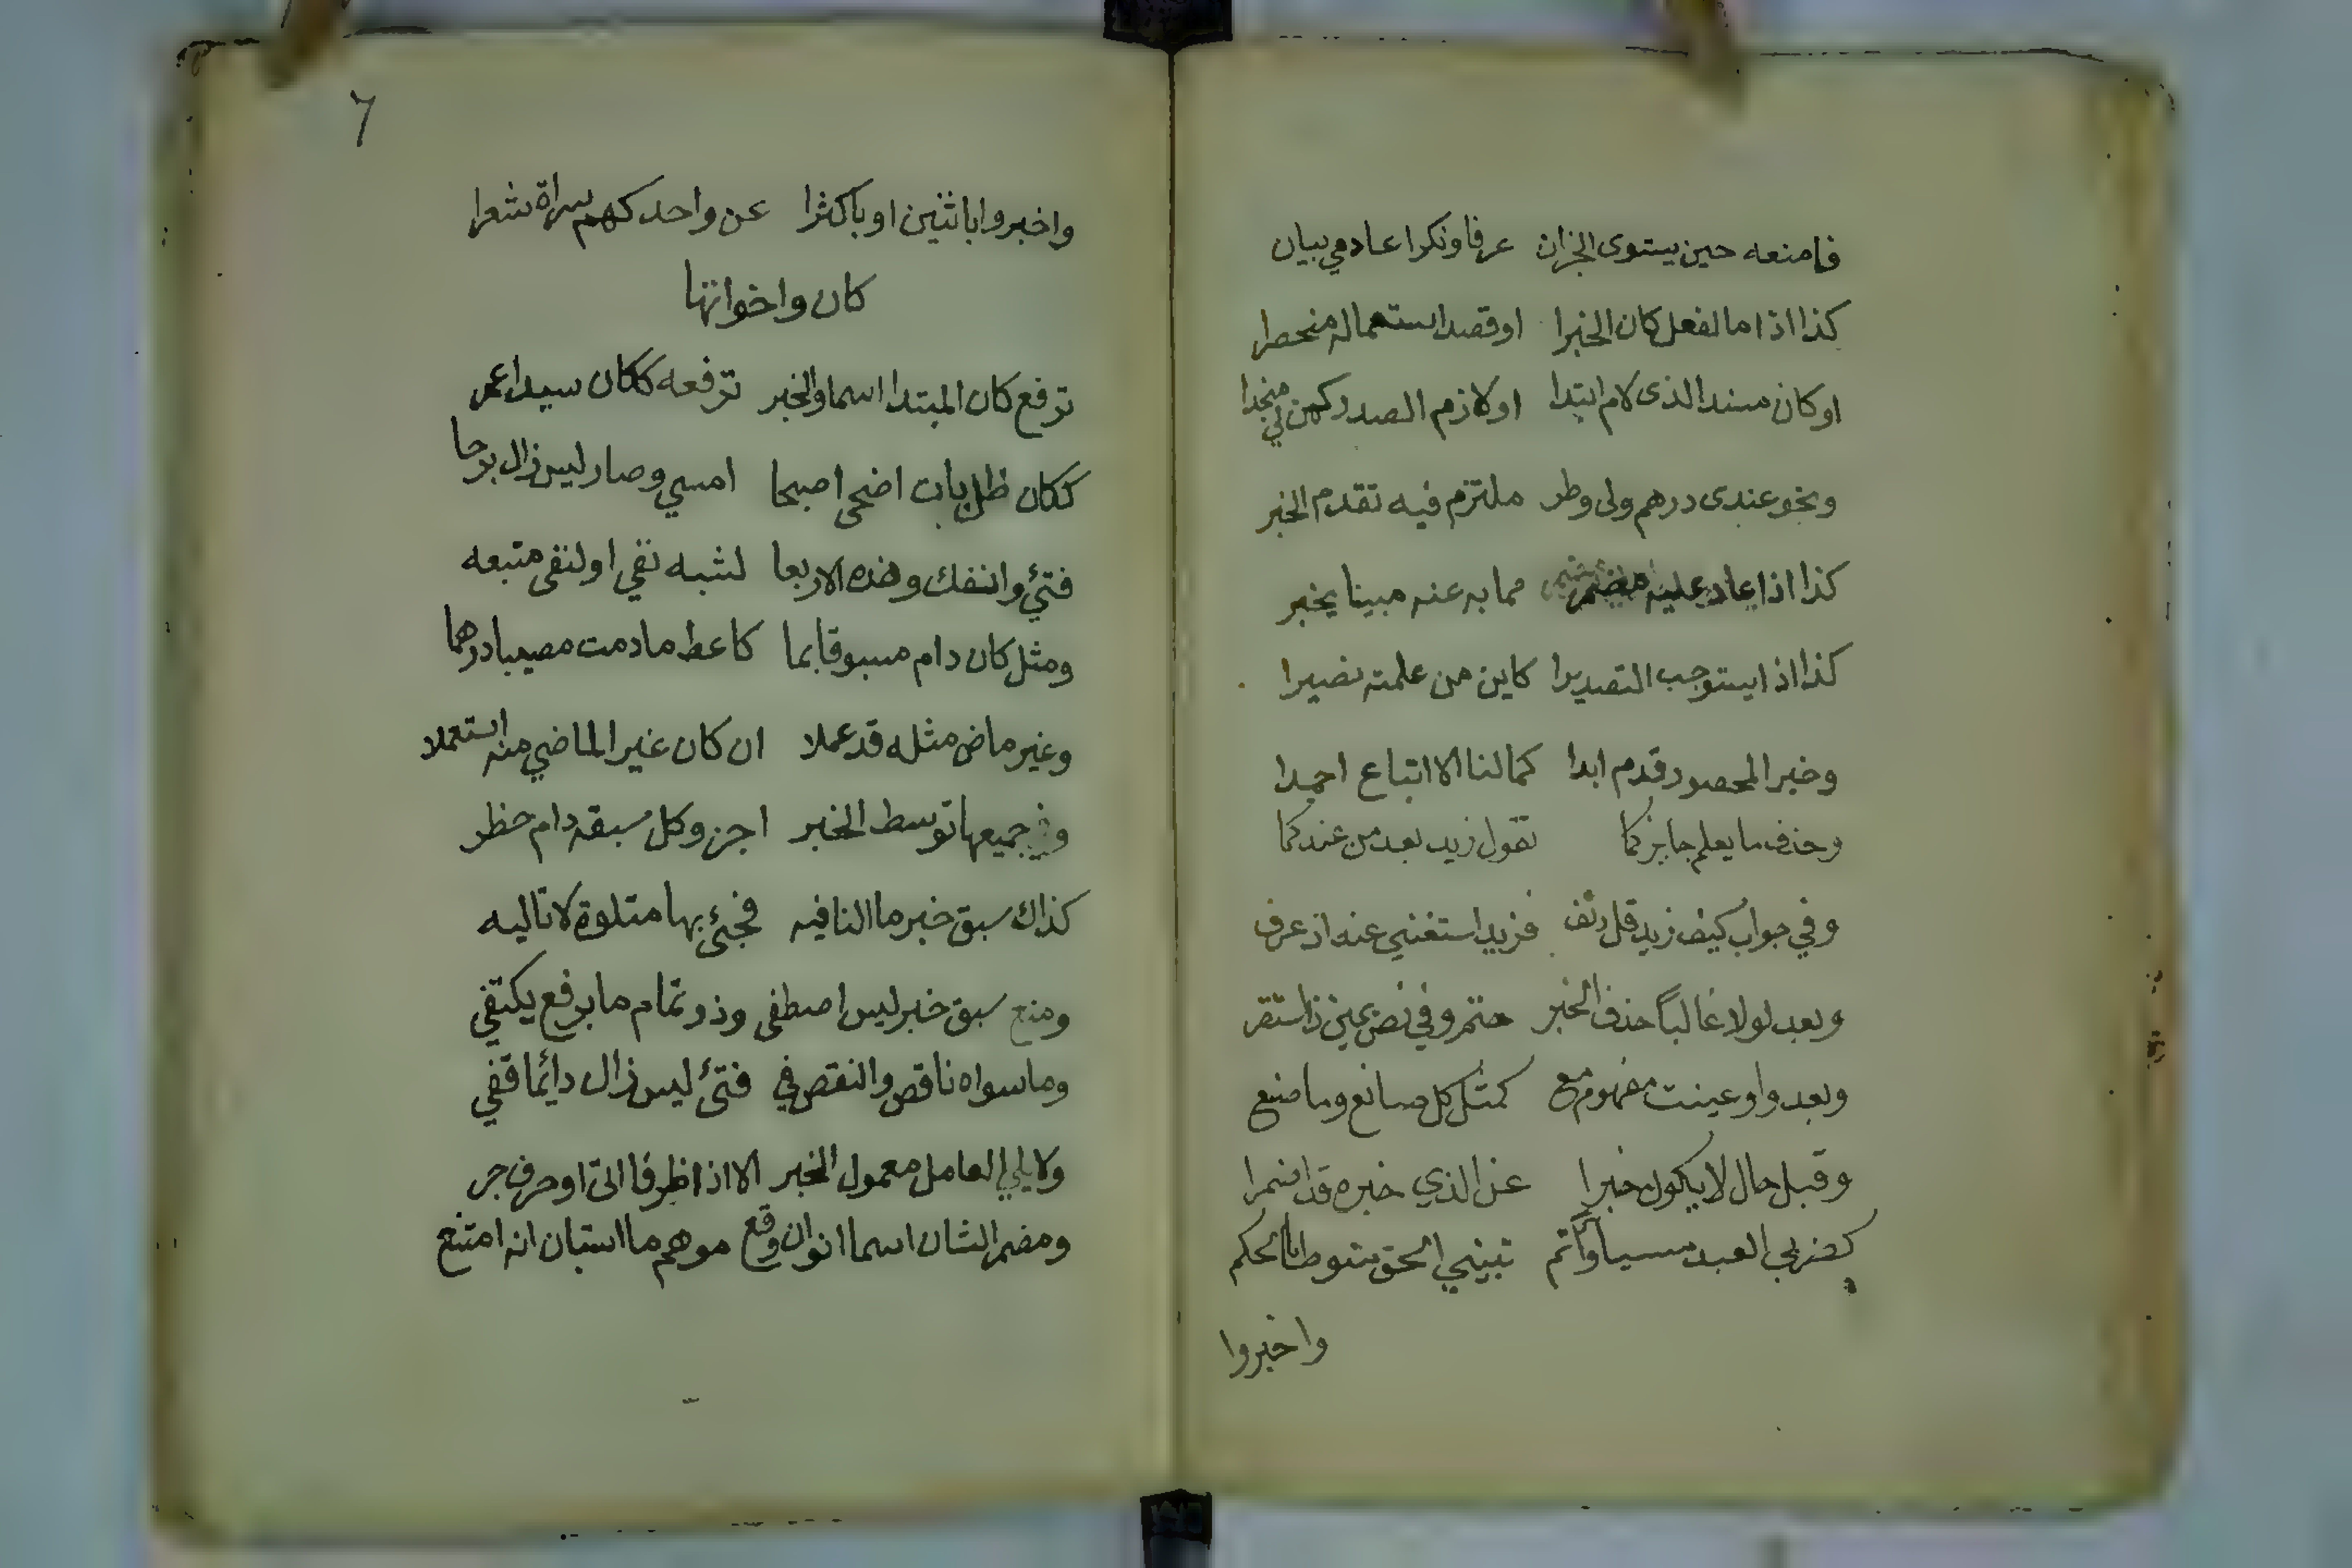 فامنعه حين يستوى الجزان عرفا ونكرا عادمي بيان
كذا اذا ما لفعل كان الخبرا او قصد استعماله منحصرا
او كان مسندا لذى لام ابتدا او لازم الصدر كمن لي منجدا
ونحو عندى درهم ولى وطر ملتزم فيه تقدم الخبر
كذا اذا عاد عليه مضمر مما به عنه مبينا يخبر
كذا اذا يستوجب التصديرا كاين من علمته نصيرا
وخبر المحصور قدم ابدا كما لنا الا اتباع احمدا
وحذف ما يعلم جايز كما تقول زيد بعد من عندكما
وفي جواب كيف زيد قل دنف فزيد استغني عنه اذ عرف
وبعد لولا غالباً حذف الخبر حتم وفي نص يمين ذا استقر
وبعد واو عينت مفهوم مع كمثل كل صانع وما صنع
وقبل حال لا يكون خبرا عن الذي خبره قد اضمرا
كضربي العبد مسيا واتم تبيني الحق منوطا بالحكم
واخبروا
٦
واخبروا باثنين او باكثرا عن واحد كهم سراة شعرا
كان واخواتها
ترفع كان المبتدا اسما والخبر ترفعه ككان سيدا عمر
ككان ظل بات اضحى اصبحا امسي وصار ليس زال برحا
فتئ وانفك وهذه الاربعا لشبه نفي او لنفى متبعه
ومثل كان دام مسبوقا بما كاعط ما دمت مصيبا درهما
وغير ماض مثله قد عملا ان كان غير الماضي منه استعملا
وفي جميعها توسط الخبر اجز وكل سبقه دام حظر
كذاك سبق خبر ما النافيه فجئ بها متلوة لا تاليه
ومنع سبق خبر ليس اصطفى وذو تمام ما برفع يكتفي
وما سواه ناقص والنقص في فتئ ليس زال دائما قفي
ولا يلي العامل معمول الخبر الا اذا ظرفا اتى او حرف جر
ومضمر الشان اسما انو ان وقع موهم ما استبان انه امتنع